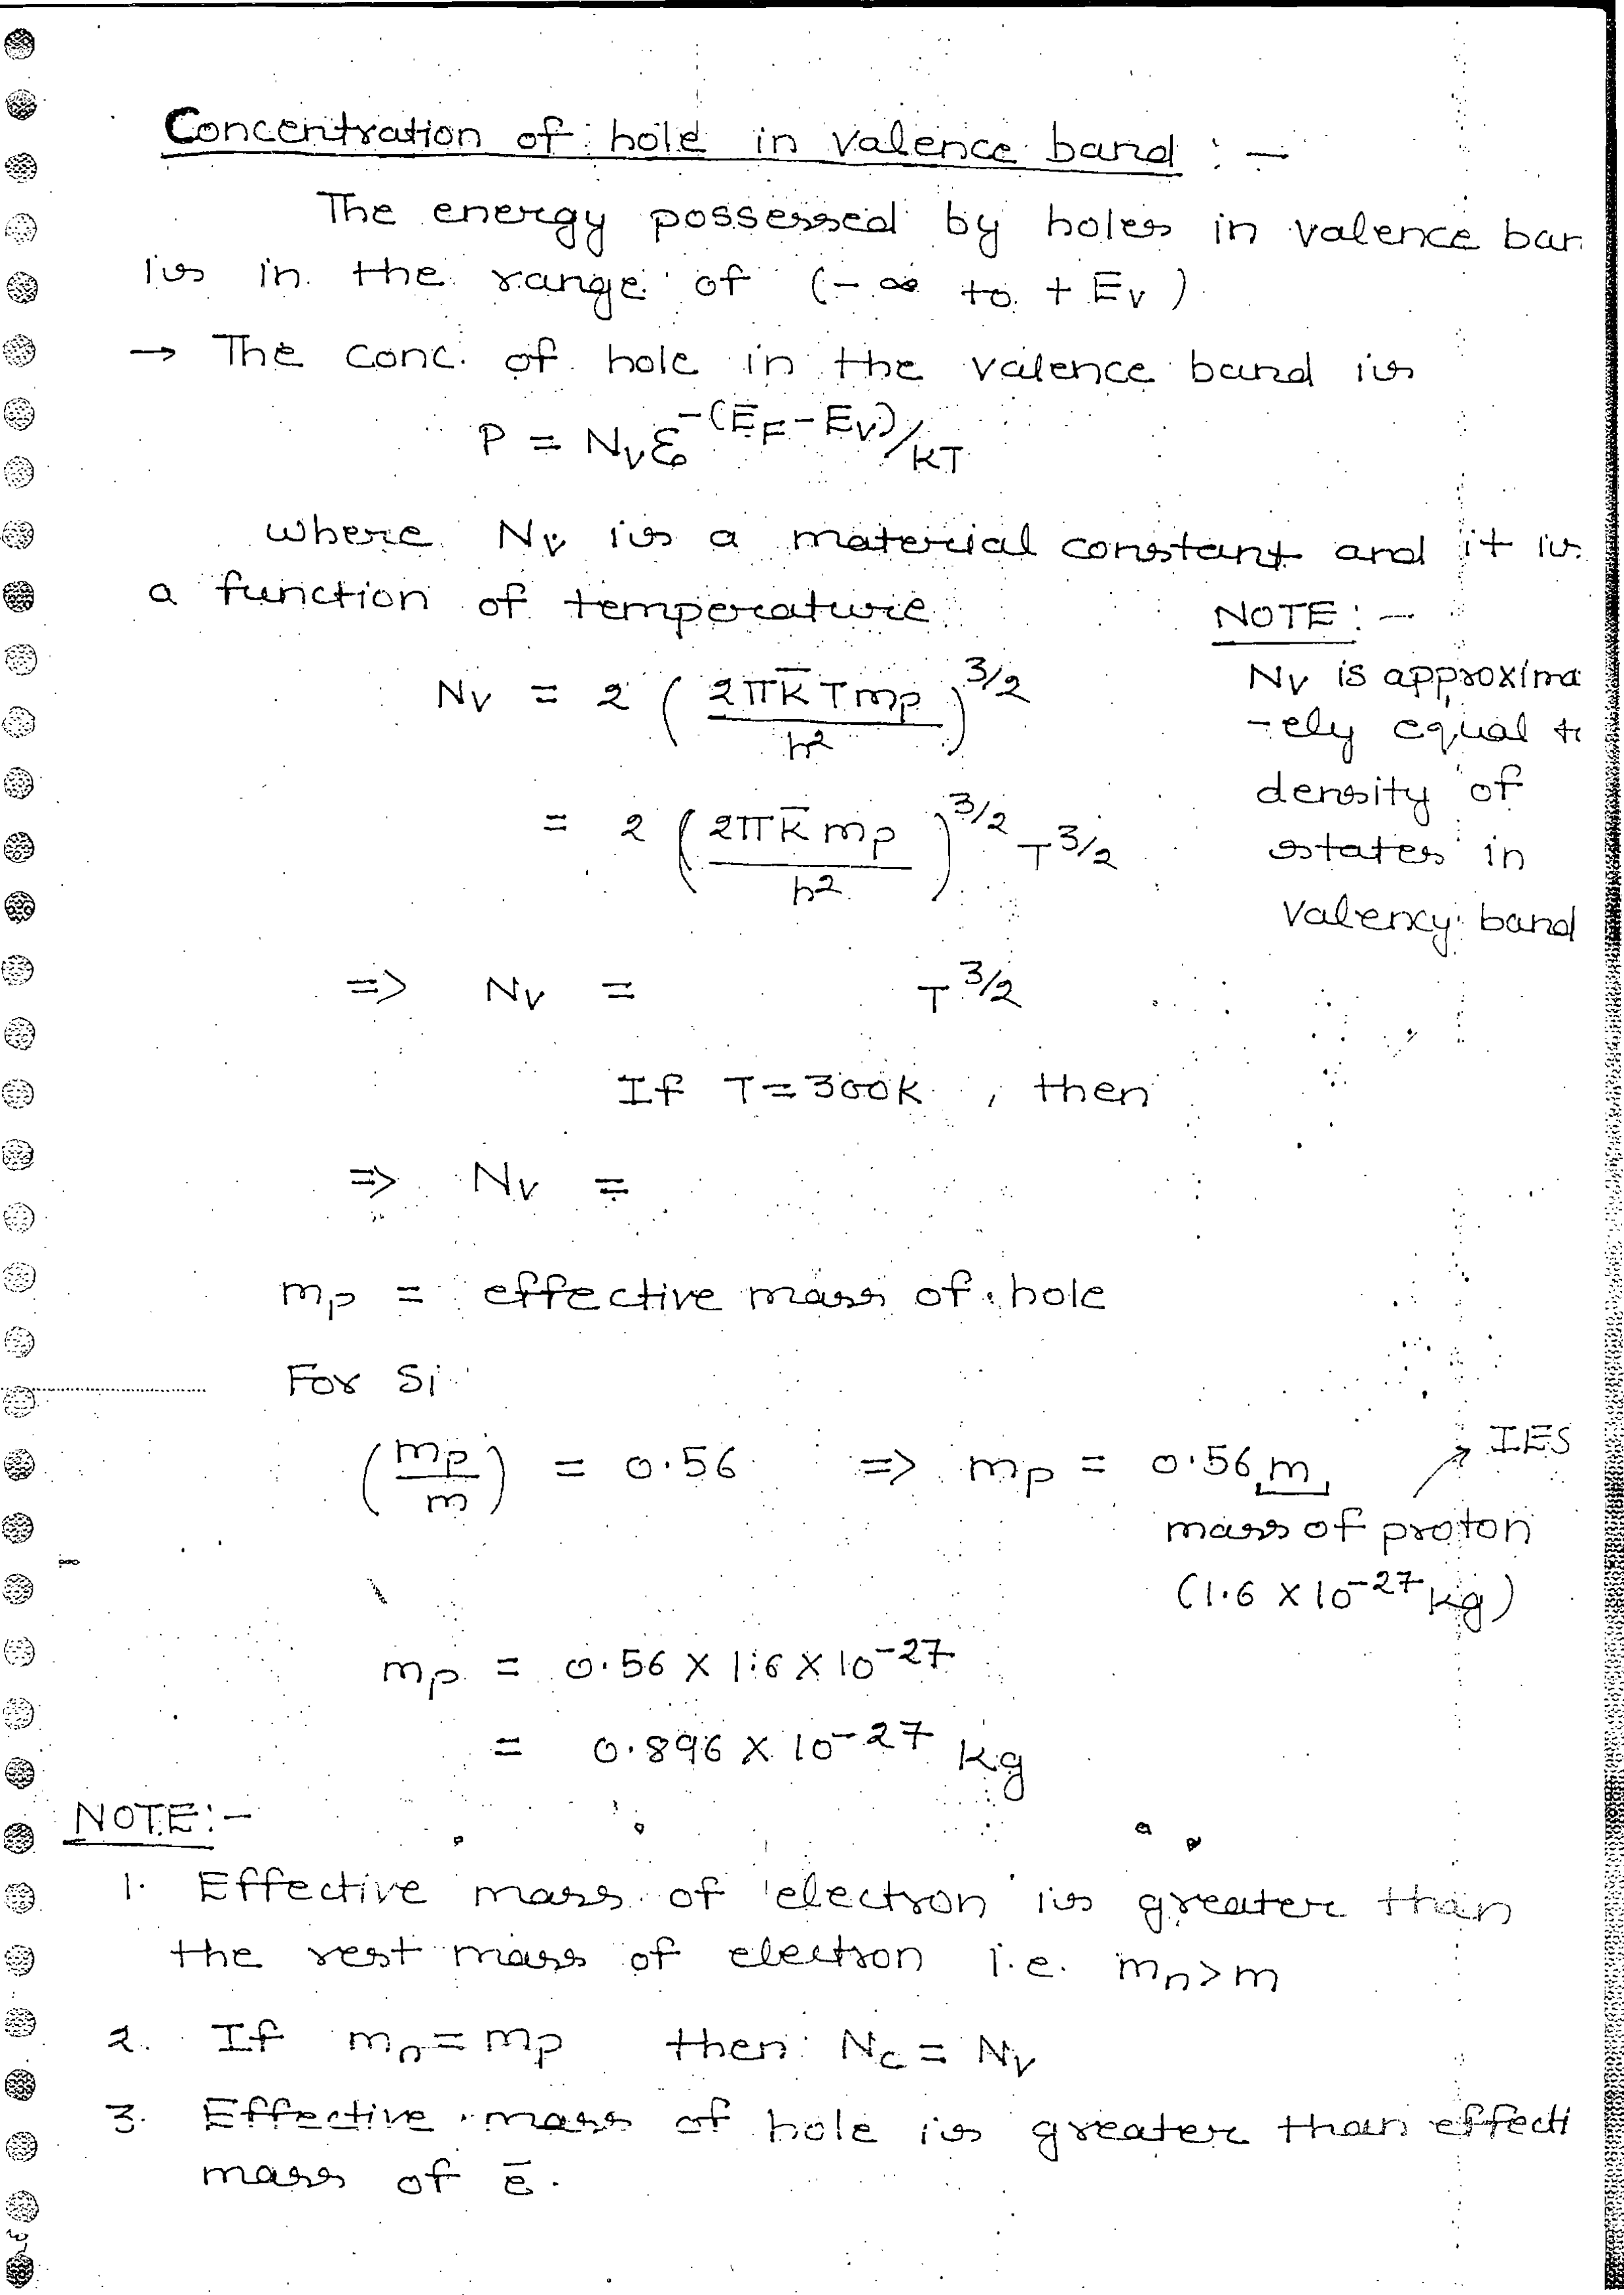 Concentration of hole in valence band :-
The energy possessed by holes in valence ban
is in the range of (-∞ to +Ev)
→ The conc. of hole in the valence band is
P = Nv ε^-(EF-Ev)/KT
where Nv is a material constant and it is
a function of temperature
NOTE:-
Nv is approxima
-ely equal t
density of
states in
valency band
Nv = 2 (2πK̄Tmp/h²)^3/2
= 2 (2πK̄mp/h²)^3/2 T^3/2
=> Nv = T^3/2
If T=300K, then
=> Nv =
mp = effective mass of hole
For Si
(mp/m) = 0.56 => mp = 0.56 m
IES
mass of proton
(1.6 X 10^-27 kg)
mp = 0.56 X 1.6 X 10^-27
= 0.896 X 10^-27 kg
NOTE:-
1. Effective mass of electron is greater than
the rest mass of electron i.e. mn>m
2. If mn=mp then Nc = Nv
3. Effective mass of hole is greater than effecti
mass of ē.